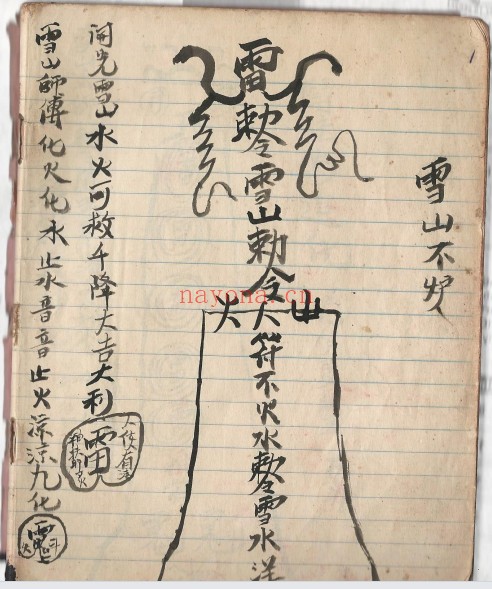 1
雪山不火
雷敕令雪山勅令大符不火水敕令雪水洋
火 山
nayona.cn
開光雪山水火可救千降大吉大利
雷
雪山師傅化火化水止水音音止火涼涼九化